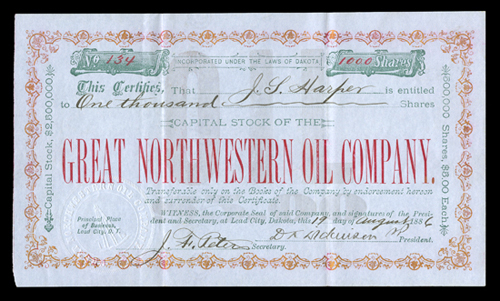 No. 134
INCORPORATED UNDER THE LAWS OF DAKOTA
1000 Shares
This Certifies, That J. S. Harper is entitled
to One thousand Shares
CAPITAL STOCK OF THE
GREAT NORTHWESTERN OIL COMPANY.
Transferable only on the Books of the Company by endorsement hereon
and surrender of this Certificate.
WITNESS, the Corporate Seal of said Company, and signatures of the Presi-
dent and Secretary, at Lead City, Dakota; this 19 day of August 1886
Principal Place
of Business,
Lead City, D. T.
J. F. Peters
Secretary.
President.
Capital Stock, $2,500,000.
Shares, $5.00 Each.